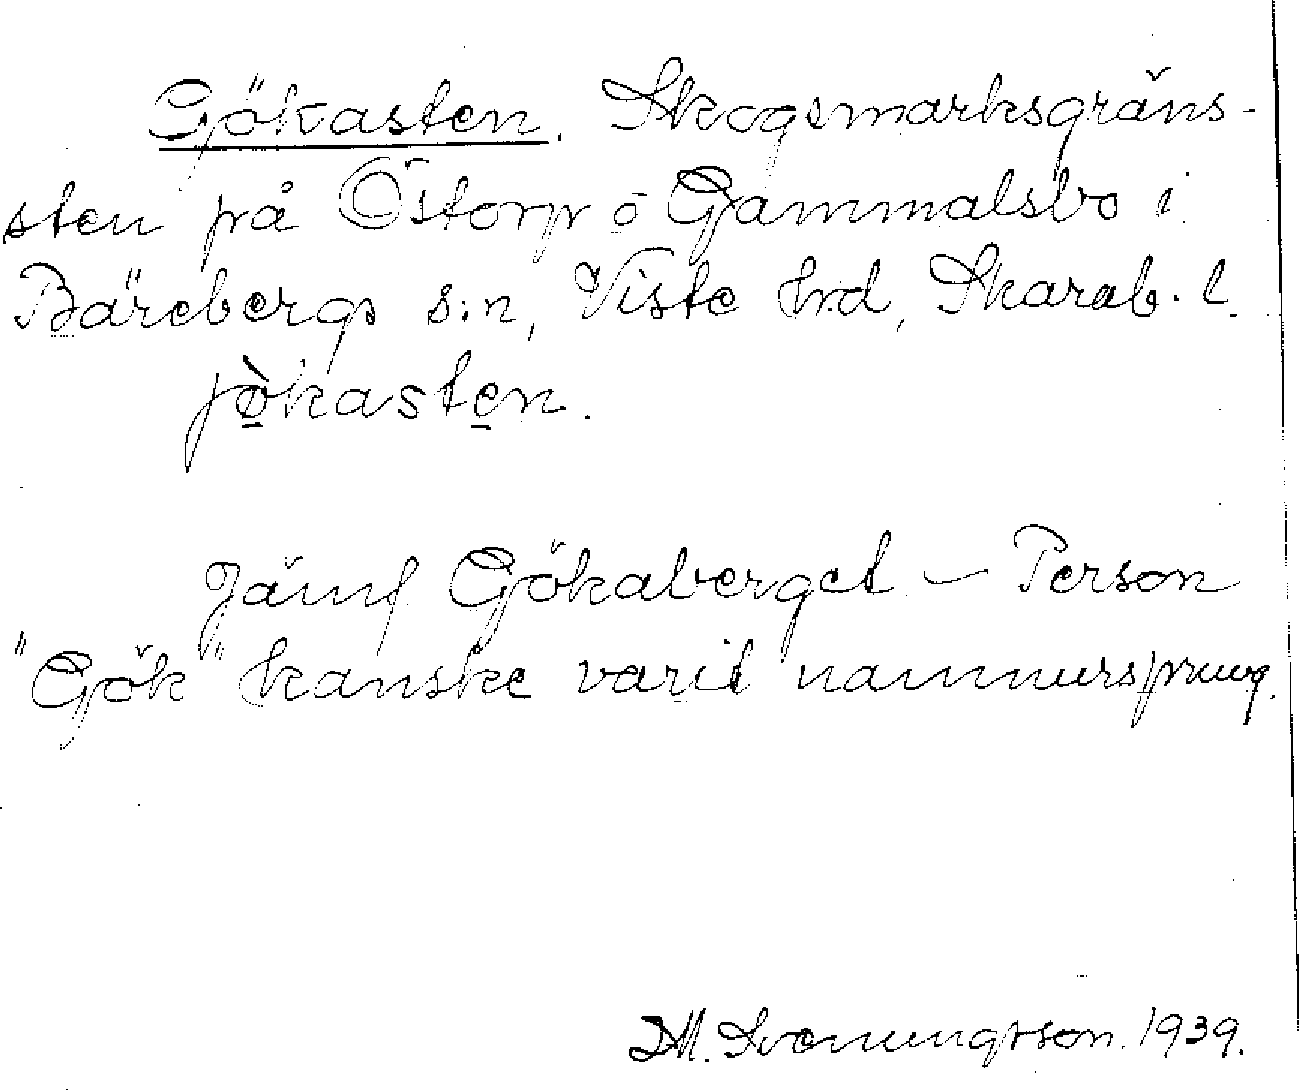 Gökasten. Skogsmarksgräns-
sten på Östorp o Gammalsbo i
Bärebergs s:n, Viste hrd, Skarab. l.
jo̱̍kaste̱n.
Jämf Gökaberget – Person
"Gök" kanske varit namnursprung.
M. Svenungsson. 1939.